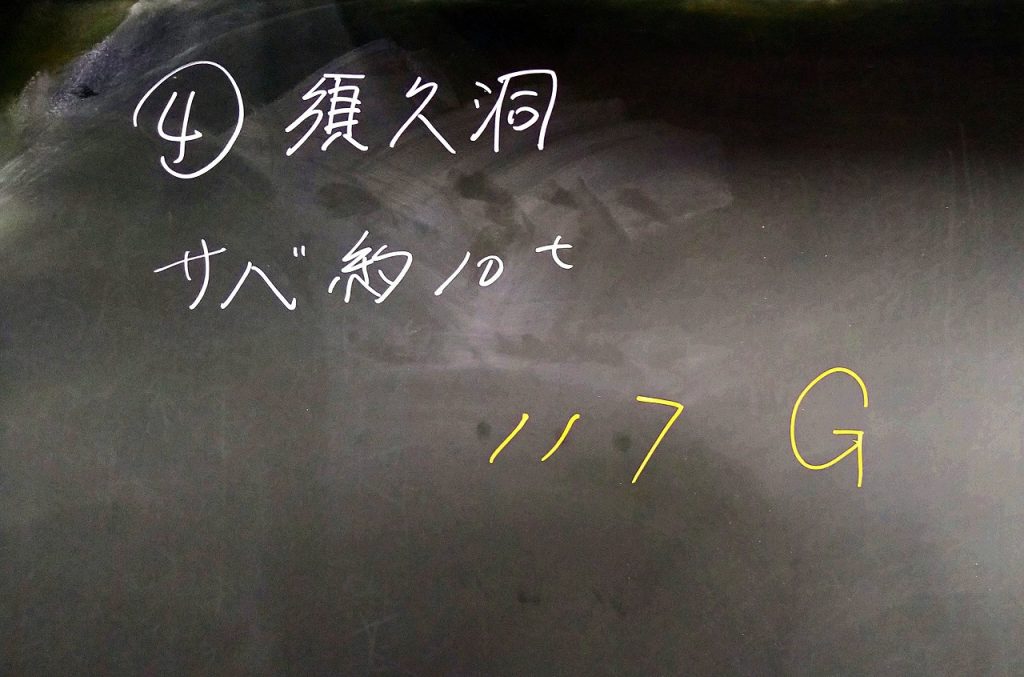 ④須久洞
サバ約10t
117 G